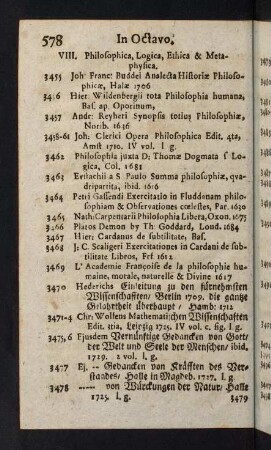 578 In Octavo.
VIII. Philosophica, Logica, Ethica & Meta-
physica.
3455 Joh: Franc: Buddei Analecta Historiæ Philoso-
phicæ, Halæ 1706
3456 Hier: Wildenbergii tota Philosophia humana,
Bas. ap. Oporinum,
3457 Andr: Reyheri Synopsis totius Philosophiæ,
Norib. 1636
3458-61 Joh: Clerici Opera Philosophica Edit. 4ta,
Amst 1710. IV vol. l g.
3462 Philosophia juxta D: Thomæ Dogmata f Lo-
gica, Col. 1681
3463 Evstachii a S. Paulo Summa philosophiæ, qva-
dripartita, ibid. 1616
3464 Petri Gassendi Exercitatio in Fluddonam philo-
sophiam & Observationes cœlestes, Par. 1630
3465 Nath: Carpentarii Philosophia Libera, Oxon. 1675
3466 Platos Demon by Th Goddard, Lond. 1684
3467 Hier: Cardanus de subtilitate, Bas.
3468 J: C. Scaligeri Exercitationes in Cardani de sub-
tilitate Libros, Frf 1612
3469 L' Academie Françoise de la philosophie hu-
maine, morale, naturelle & Divine 1617
3470 Hederichs Einleitung zu den fürnehmsten
Wissenschafften/ Berlin 1709. die gantze
Gelahrtheit überhaupt/ Hamb: 1712
3471-4 Chr: Wolfens Mathematischen Wissenschaften
Edit. 3tia, Leipzig 1725. IV vol. c. fig. l g.
3475,6 Ejusdem Vernünftige Gedancken von Gott/
der Welt und Seele der Menschen/ ibid.
1729. 2 vol. l g.
3477 Ej. -- Gedancken von Kräfften des Ver-
standes/ Halle in Magdeb. 1727. l g.
3478 ---- von Würckungen der Natur/ Halle
1725. l g.
3479